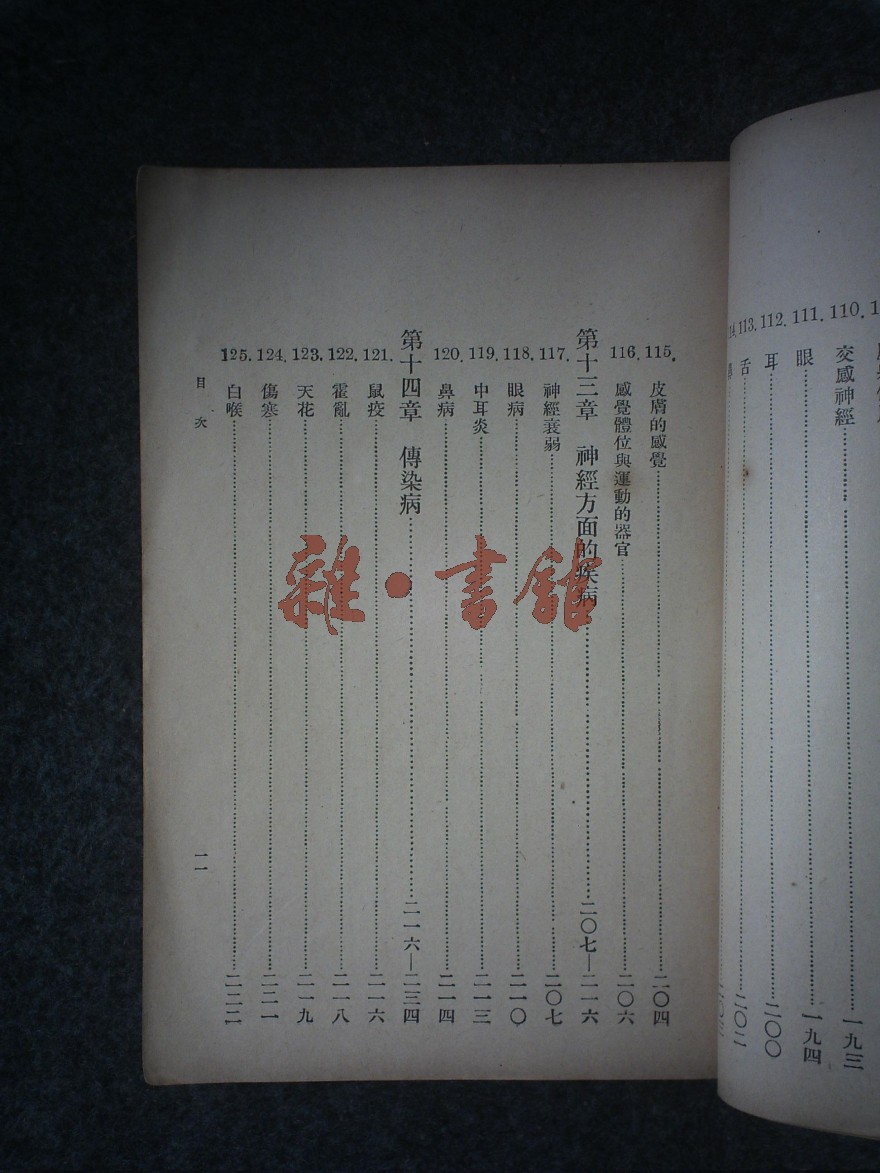 110. 交感神經……一九三
111. 眼……一九四
112. 耳……二〇〇
113. 舌……二〇二
115. 皮膚的感覺……二〇四
116. 感覺體位與運動的器官……二〇六
第十三章 神經方面的疾病……二〇七—二一六
117. 神經衰弱……二〇七
118. 眼病……二一〇
119. 中耳炎……二一三
120. 鼻病……二一四
第十四章 傳染病……二一六—二三四
121. 鼠疫……二一六
122. 霍亂……二一八
123. 天花……二一九
124. 傷寒……二二一
125. 白喉……二二二
目次
一一
雜·書館